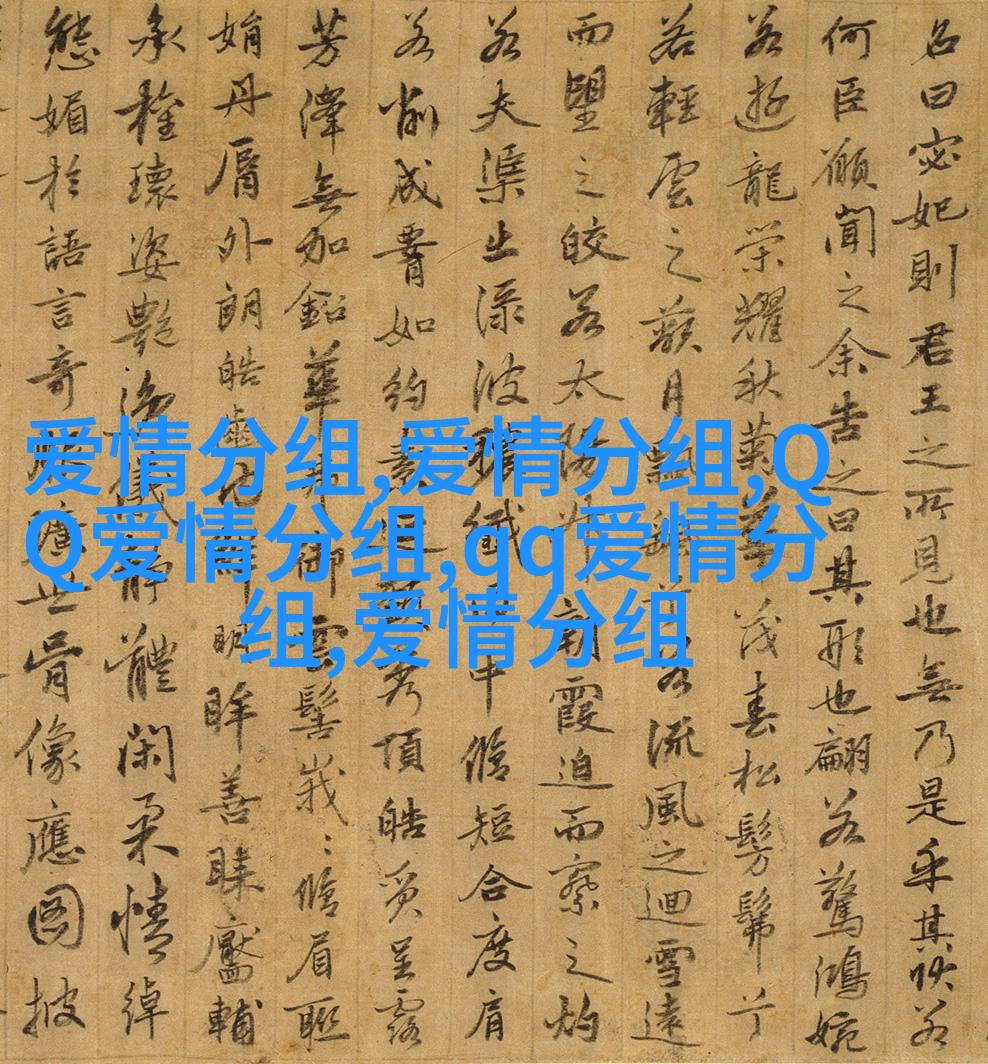 名曰宓妃則君王之所見也無乃是乎其狀若
何臣願聞之余告之曰其形也翩若驚鴻婉
若遊龍榮耀秋菊華茂春松髣髴兮
若輕雲之蔽月飄颻兮若流風之迴雪遠
而望之皎若太陽升朝霞迫而察之灼
若夫渠出淥波穠纖得中脩短合度肩
若削成腰如約素延頸秀項皓質呈露
芳澤無加鉛華弗御雲髻峩〻脩眉聯
娟丹脣外朗皓齒內鮮明眸善睞靨輔
承權瓌姿艷逸儀靜體閑柔情綽
態媚於語言奇服曠世骨像應圖披
爱情分组,爱情分组,Q
Q爱情分组,qq爱情分
组,爱情分组